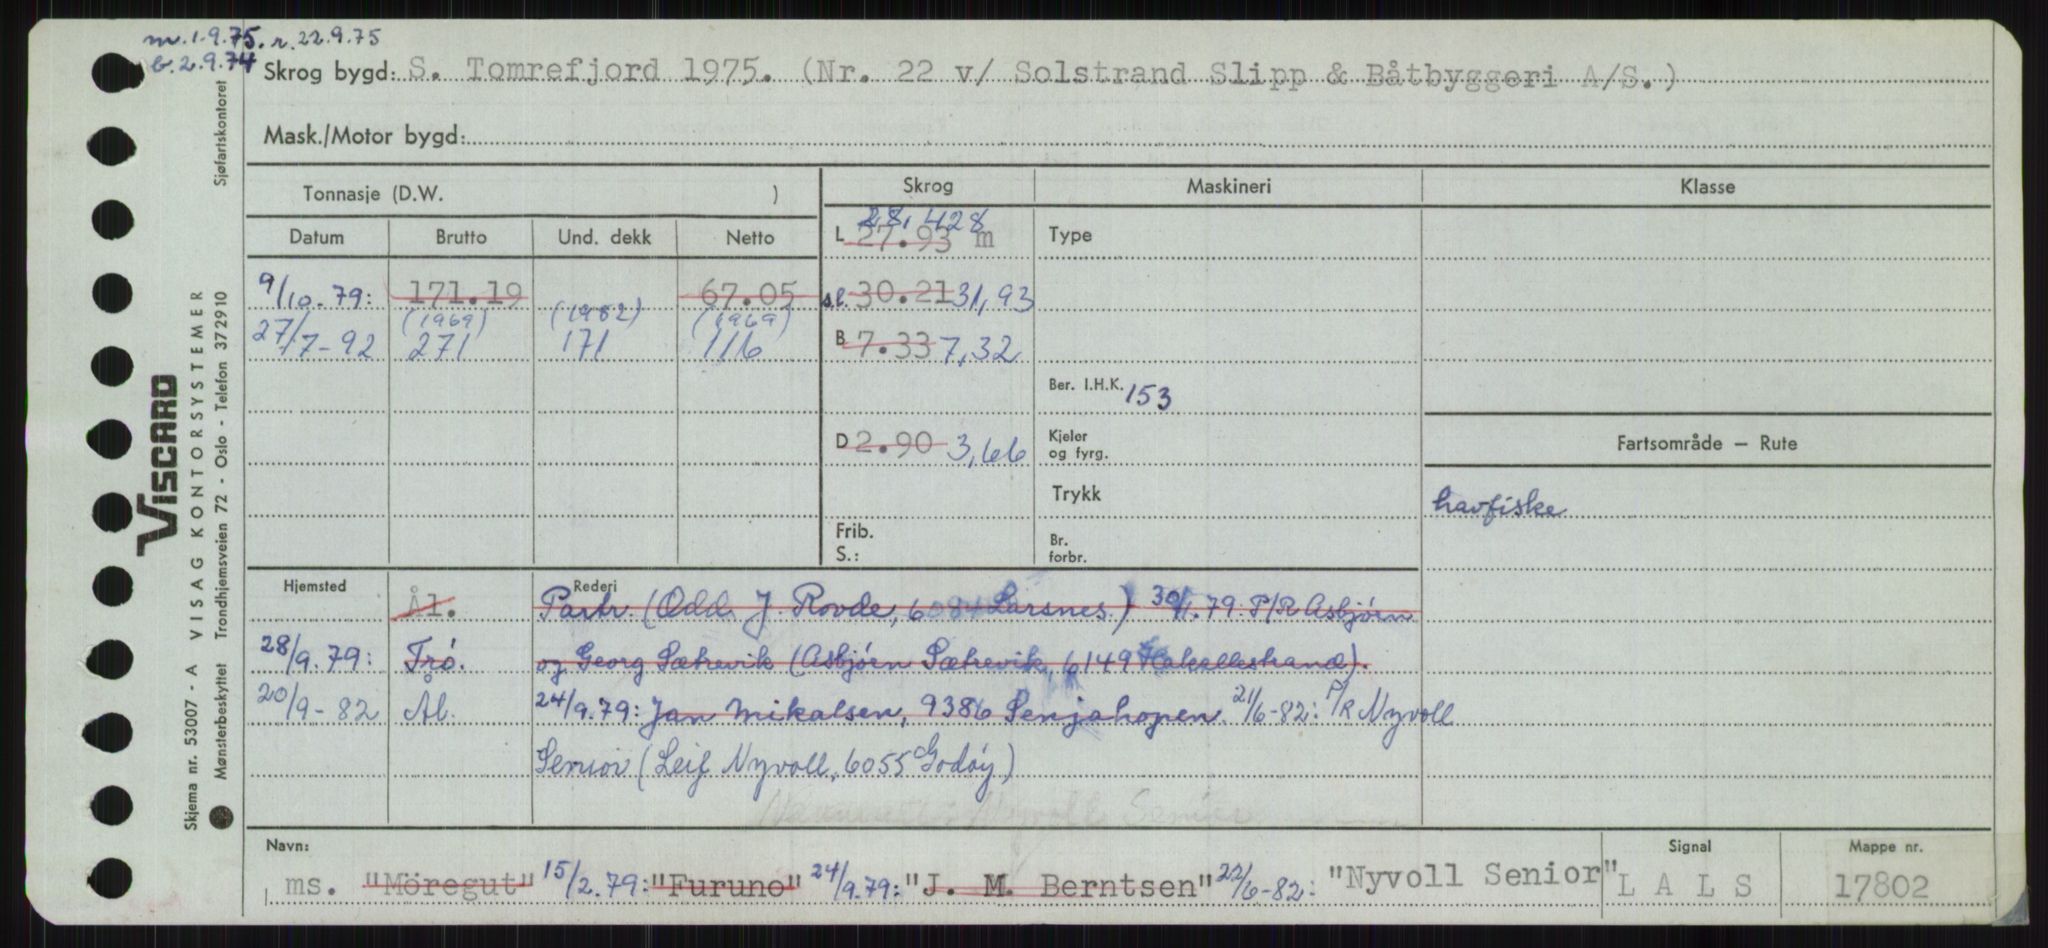 m. 1.9.75. r. 22.9.75
b. 2.9.74
Skrog bygd: S. Tomrefjord 1975. (Nr. 22 v/ Solstrand Slipp & Båtbyggeri A/S.)
Mask./Motor bygd:
Tonnasje (D.W. )
Skrog Maskineri Klasse
Datum Brutto Und. dekk Netto
L 27.93 m 28,428
Type
9/10.79: 171.19 67.05
s.l. 30.21 31,93
(1969) (1982) (1969)
27/7-92 271 171 116
B 7.33 7,32
Ber. I.H.K. 153
D 2.90 3,66
Kjeler
og fyrg.
Fartsområde — Rute
Trykk
havfiske
Frib.
S.:
Br.
forbr.
Hjemsted Rederi
Ål. Partr. (Odd J. Rovde, 6084 Larsnes.) 30/1.79: P/R Asbjørn
28/9.79: Trö. og Georg Sætrevik (Asbjørn Sætrevik, 6149 Hakallestrand).
20/9-82 Ål. 24/9.79: Jan Mikalsen, 9386 Senjahopen. 21/6-82: P/R Nyvoll
Senior (Leif Nyvoll, 6055 Godøy)
Nyvoll Senior
Navn: Signal Mappe nr.
ms. "Möregut" 15/2.79: "Furuno" 24/9.79: "J. M. Berntsen" 22/6-82: "Nyvoll Senior" L A L S 17802
VISCARD
Skjema nr. 53007 - A VISAG KONTORSYSTEMER
Mønsterbeskyttet Trondhjemsveien 72 - Oslo - Telefon 372910 Sjøfartskontoret